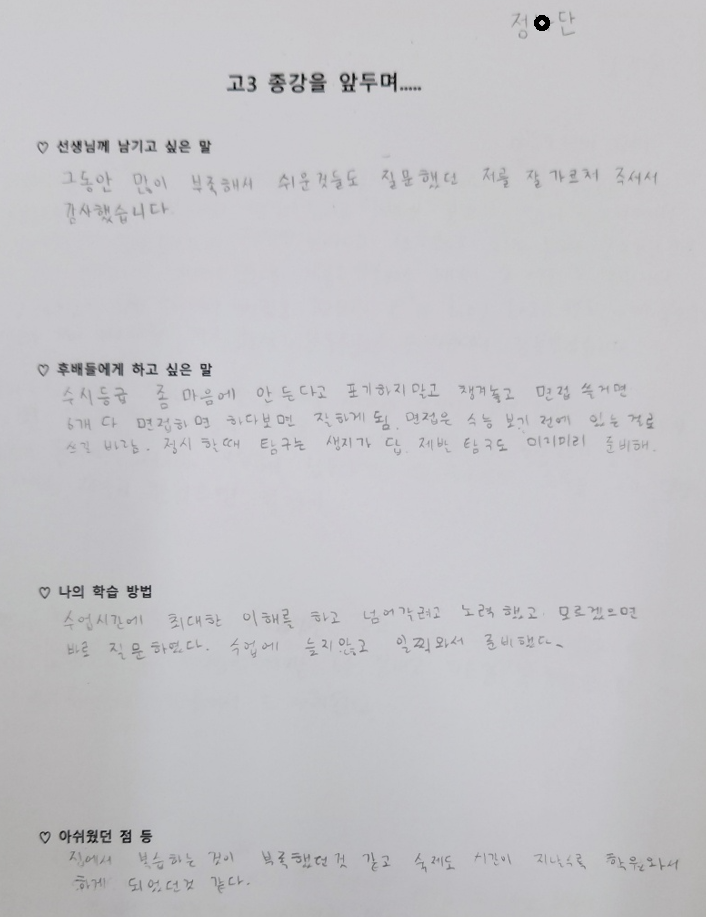 정 단
고3 종강을 앞두며.....
♡ 선생님께 남기고 싶은 말
그동안 많이 부족해서 쉬운것들도 질문했던 저를 잘 가르쳐 주셔서
감사했습니다.
♡ 후배들에게 하고 싶은 말
수시등급 좀 마음에 안 든다고 포기하지말고 챙겨놓고 면접 쓸거면
6개 다 면접하면 하다보면 잘하게 됨. 면접은 수능 보기 전에 있는 걸로
쓰길 바람. 정시 할때 탐구는 생지가 답. 제발 탐구도 미리미리 준비해.
♡ 나의 학습 방법
수업시간에 최대한 이해를 하고 넘어갈려고 노력했고 모르겠으면
바로 질문하였다. 수업에 늦지않고 일찍와서 준비했다.
♡ 아쉬웠던 점 등
집에서 복습하는 것이 부족했던것 같고 숙제도 시간이 지날수록 학원와서
하게 되었던것 같다.